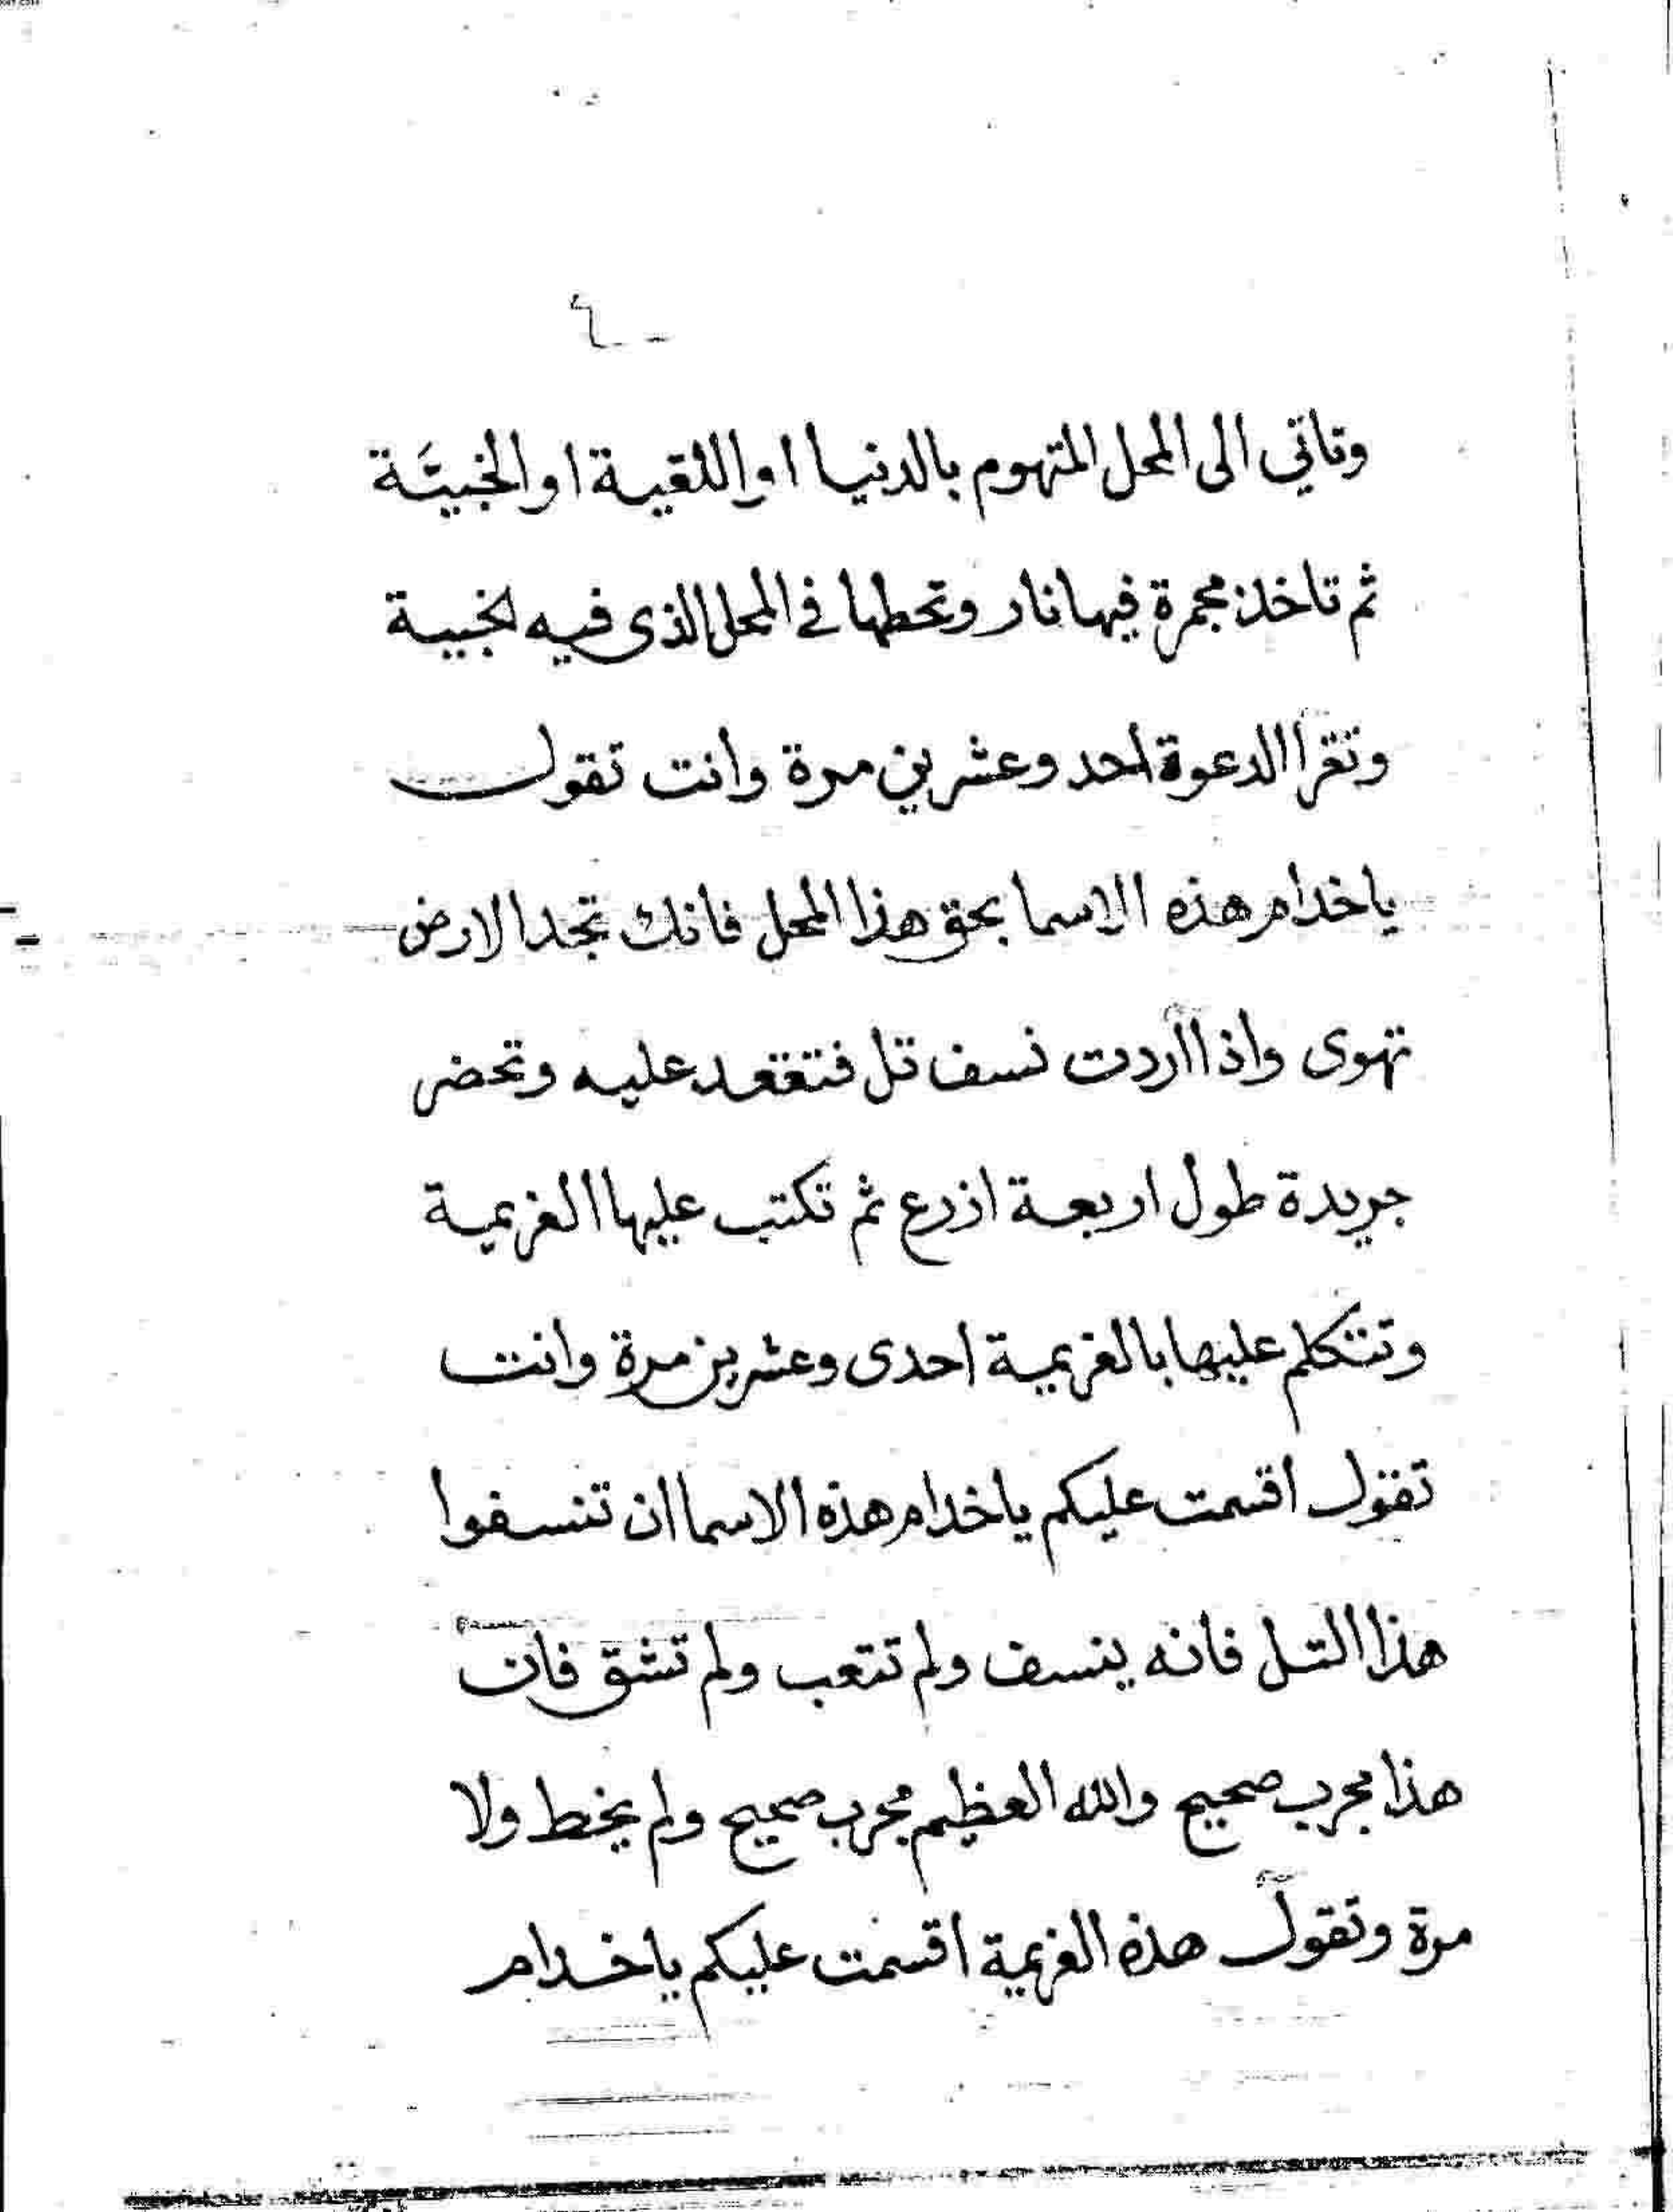 ٤
وتاتي الى المحل المتهوم بالدنيا او اللقية او الخبيَّة
ثم تاخذ مجمرة فيها نار وتحطها في المحل الذى فيه الخبية
وتقرا الدعوة احد وعشرين مرة وانت تقول
ياخدام هذه الاسما بحق هذا المحل فانك تجد الارض
تهوى واذا اردت نسف تل فتقعد عليه وتحضر
جريدة طول اربعة اذرع ثم تكتب عليها العزيمة
وتتكلم عليها بالعزيمة احدى وعشرين مرة وانت
تقول اقسمت عليكم ياخدام هذه الاسما ان تنسفوا
هذا التل فانه ينسف ولم تتعب ولم تشق فان
هذا مجرب صحيح والله العظيم مجرب صحيح ولم يخط ولا
مرة وتقول هذه العزيمة اقسمت عليكم ياخدام